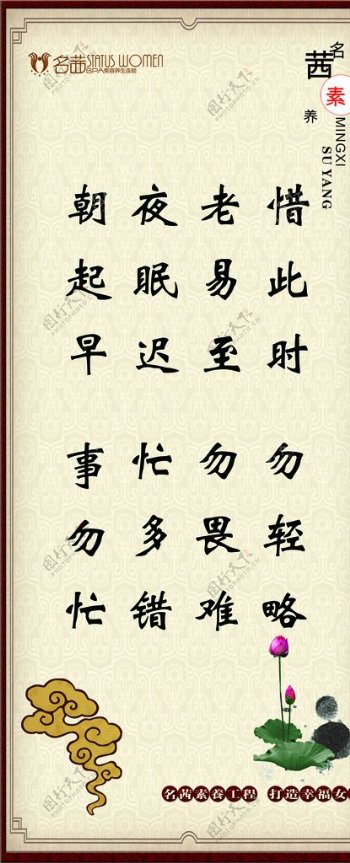 名茜 STATUS WOMEN
SPA美容养生连锁
名茜素养
MINGXI
SU YANG
朝起早
夜眠迟
老易至
惜此时
事勿忙
忙多错
勿畏难
勿轻略
名茜素養工程 打造幸福女